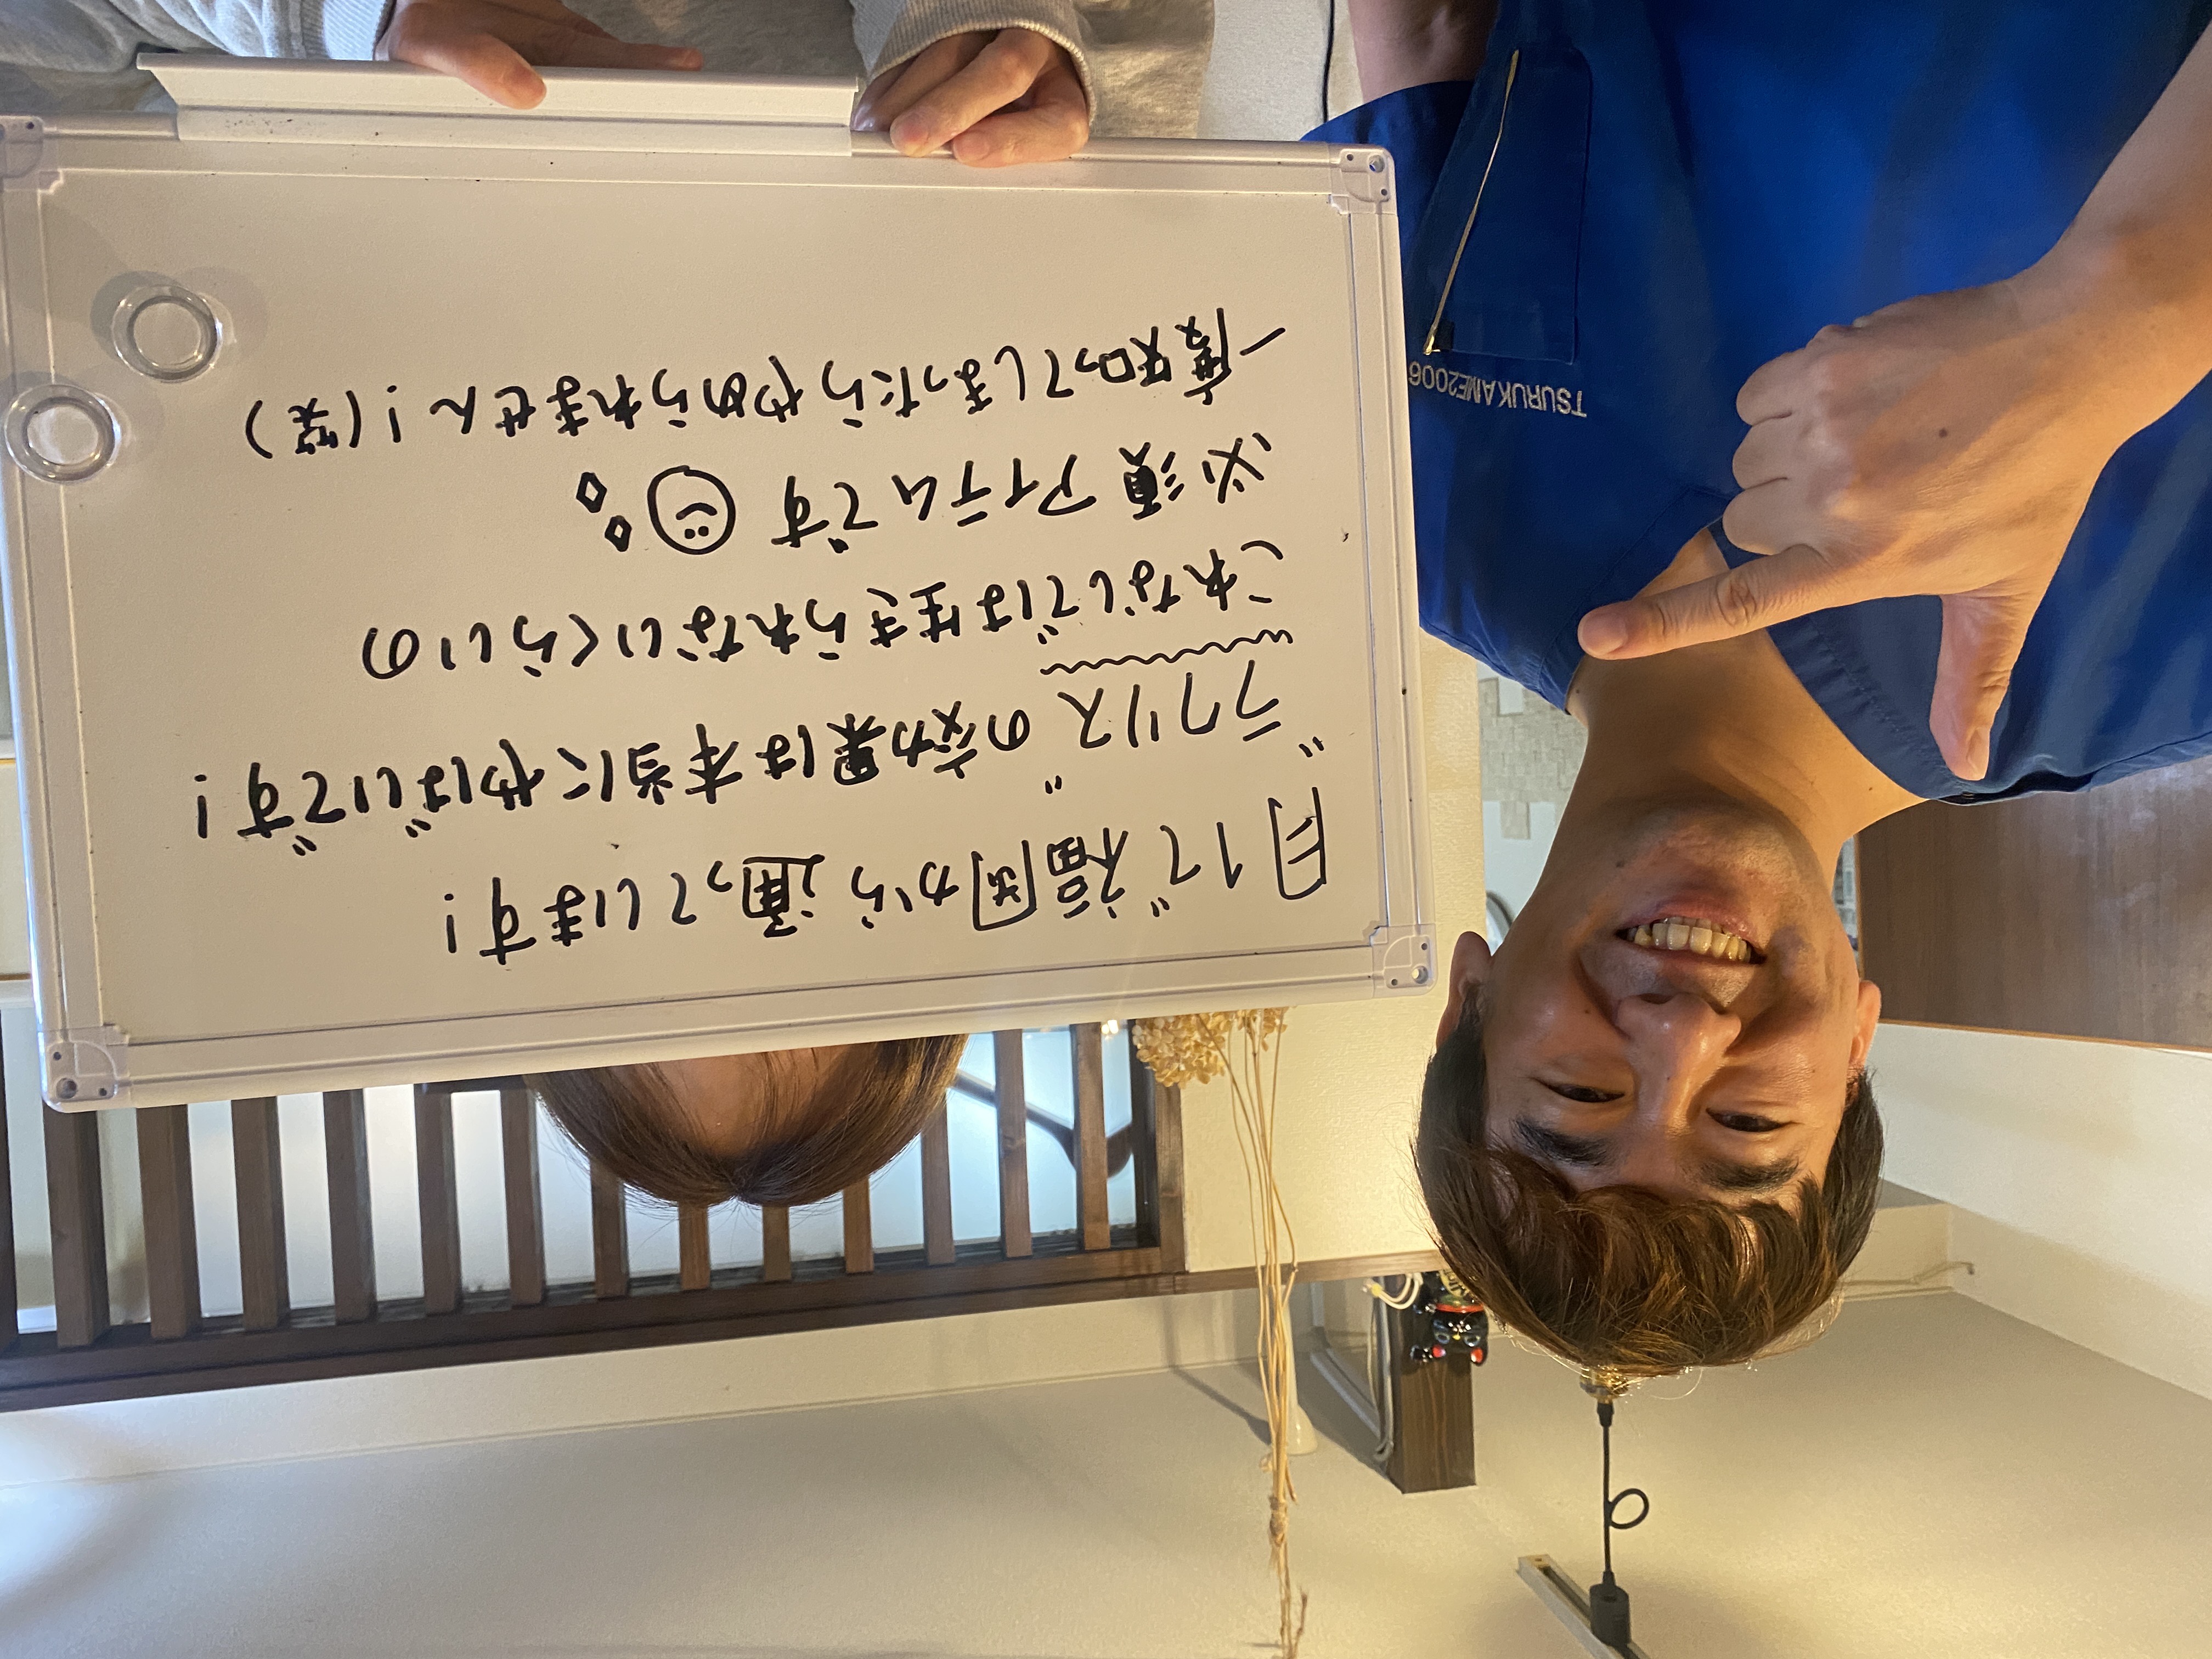 月1で福岡から通っています!
"ラクリス"の効果は本当にやばいです!
これなしでは生きられないくらいの
必須アイテムです
一度知ってしまったらやめられません!(笑)
TSURUKAME2006